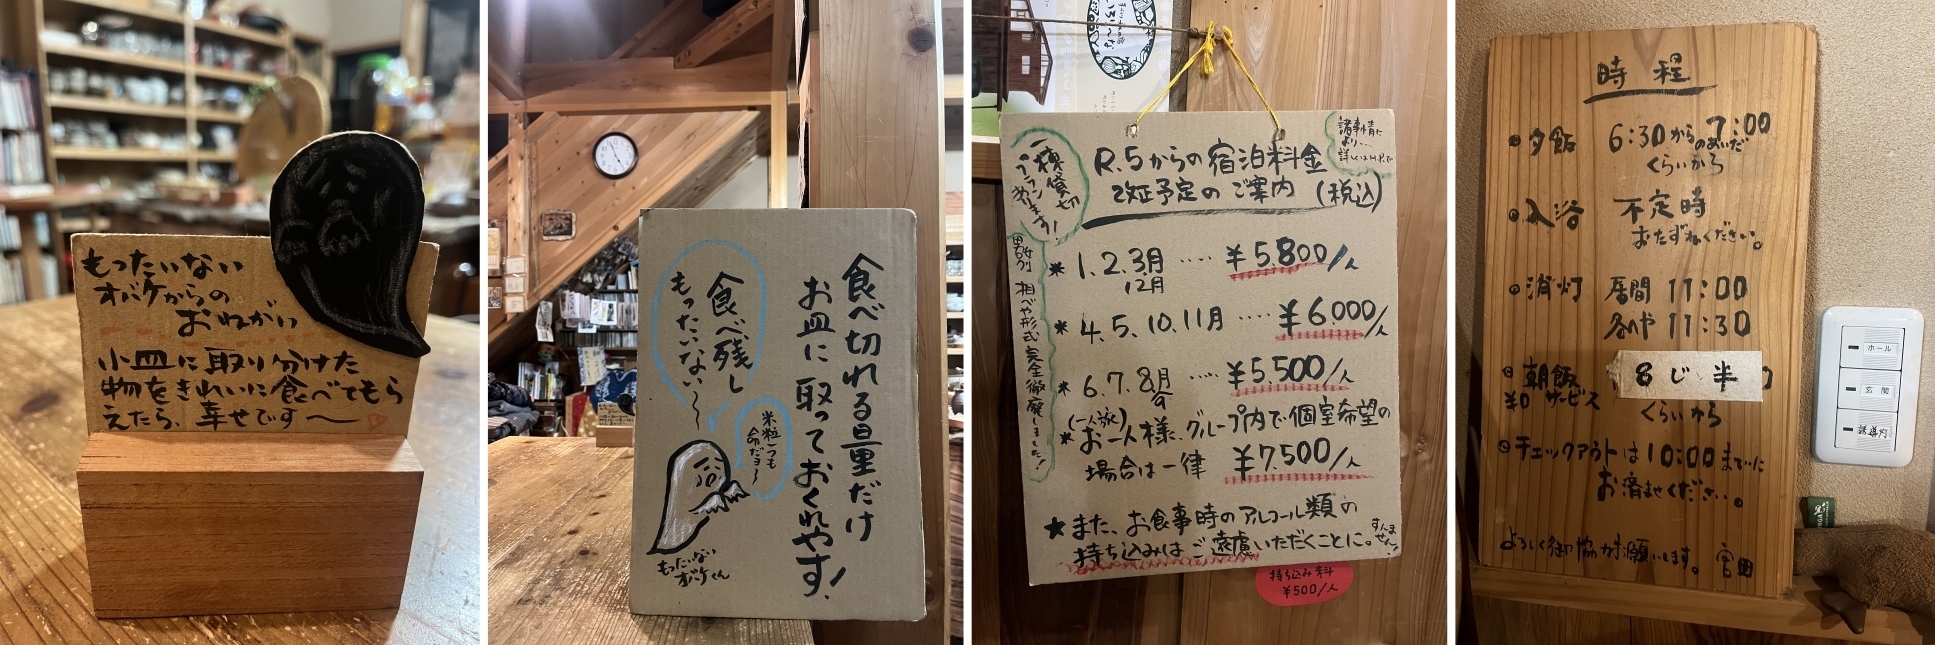 もったいない
オバケからの
おねがい
小皿に取り分けた
物をきれいに食べてもら
えたら、幸せです〜
食べ切れる量だけ
お皿に取っておくれやす!
食べ残し
もったいない〜
米粒一つも
命だヨ〜
もったいない
オバケくん
一棟貸切
プラン
あります!
諸事情に
より…
詳しくはH.P.で
R.5からの宿泊料金
改正予定のご案内(税込)
男女別 相べや形式完全撤廃しました!
* 1.2.3月 .... ¥5.800/人
12月
* 4.5.10.11月 .... ¥6.000/人
* 6.7.8月 .... ¥5.500/人
9
(一人旅)
* お一人様、グループ内で個室希望の
場合は一律 ¥7.500/人
★また、お食事時のアルコール類の
持ち込みはご遠慮いただくことに。
すんません!
持ち込み料
¥500/人
時程
夕飯 6:30から7:00
のあいだ
くらいから
入浴 不定時
おたずねください。
消灯 居間 11:00
各へや 11:30
朝飯 8じ半
¥0 サービス くらいから
チェックアウトは10:00までに
お済ませください。
よろしく御協力お願いします。 宮田
ホール
玄関
誘導灯